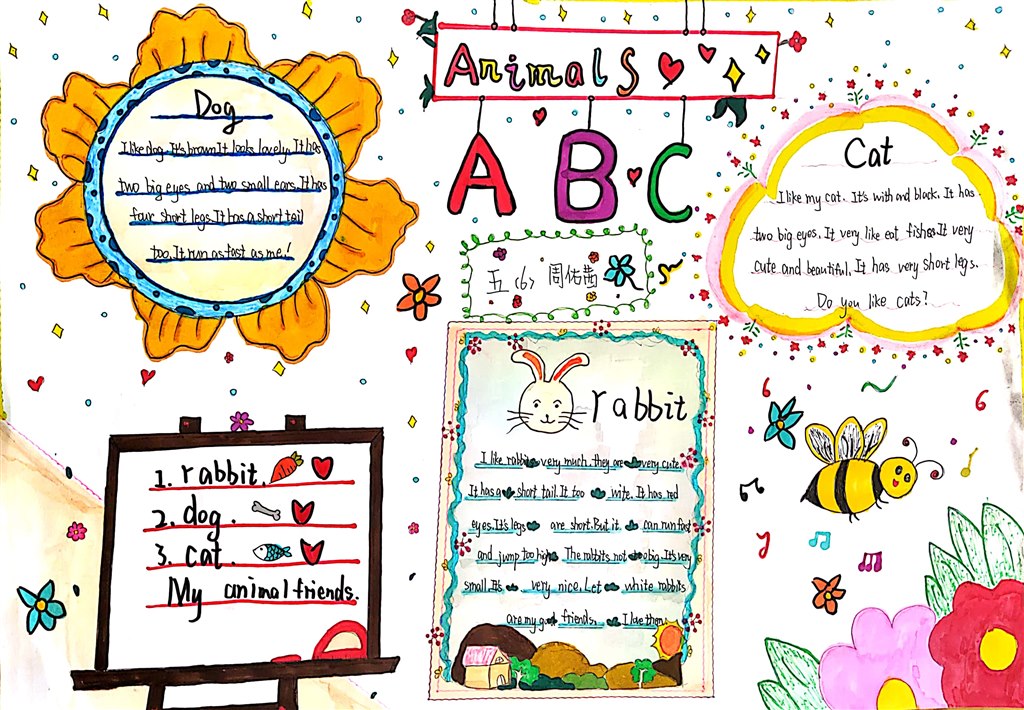 Animals
A B C
Dog
I like dog. It's brown It looks lovely. It has
two big eyes and two small ears. It has
four short legs. It has a short tail
too. It run as fast as me!
Cat
I like my cat. It's with and black. It has
two big eyes. It very like eat fishes. It very
cute and beautiful. It has very short legs.
Do you like cats?
五 (6) 周佑茜
rabbit
I like rabbit very much. they are very cute.
It has a short tail. It too wite. It has red
eyes. It's legs are short. But it can run fast
and jump too high The rabbits not too big. It's very
small. It's very nice. Let white rabbits
are my good friends. I love them
1. rabbit.
2. dog.
3. cat.
My animal friends.